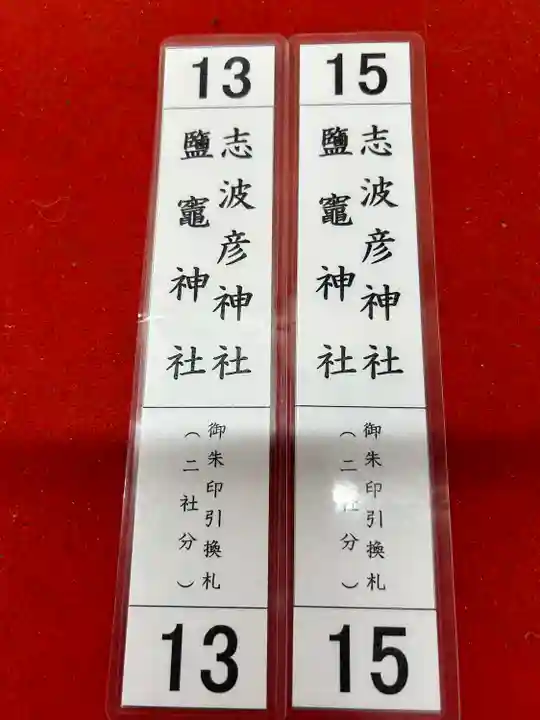 13
志波彦神社
鹽竈神社
御朱印引換札
（二社分）
13
15
志波彦神社
鹽竈神社
御朱印引換札
（二社分）
15